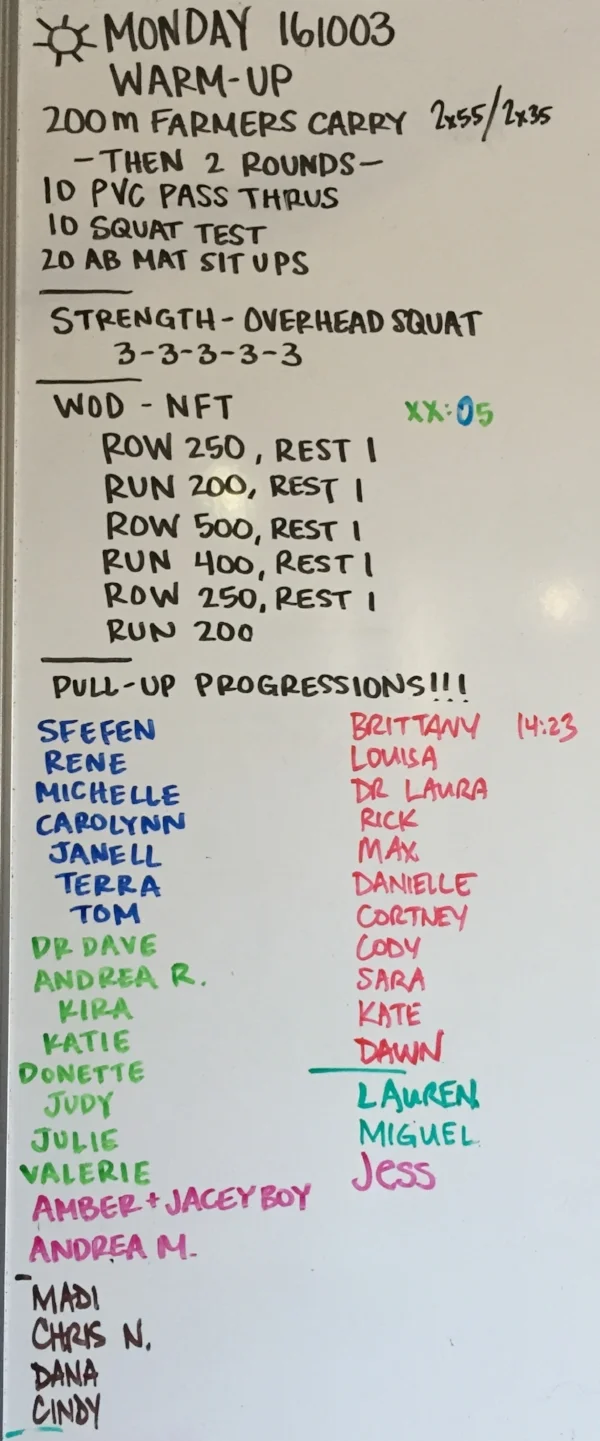 MONDAY 161003
WARM-UP
200m FARMERS CARRY 2x55/2x35
-THEN 2 ROUNDS-
10 PVC PASS THRUS
10 SQUAT TEST
20 AB MAT SIT UPS
STRENGTH - OVERHEAD SQUAT
3-3-3-3-3
WOD - NFT XX:05
ROW 250, REST 1
RUN 200, REST 1
ROW 500, REST 1
RUN 400, REST 1
ROW 250, REST 1
RUN 200
PULL-UP PROGRESSIONS!!!
SFEFEN
RENE
MICHELLE
CAROLYNN
JANELL
TERRA
TOM
DR DAVE
ANDREA R.
KIRA
KATIE
DONETTE
JUDY
JULIE
VALERIE
AMBER + JACEY BOY
ANDREA M.
MADI
CHRIS N.
DANA
CINDY
BRITTANY 14:23
LOUISA
DR LAURA
RICK
MAX
DANIELLE
CORTNEY
CODY
SARA
KATE
DAWN
LAUREN
MIGUEL
Jess